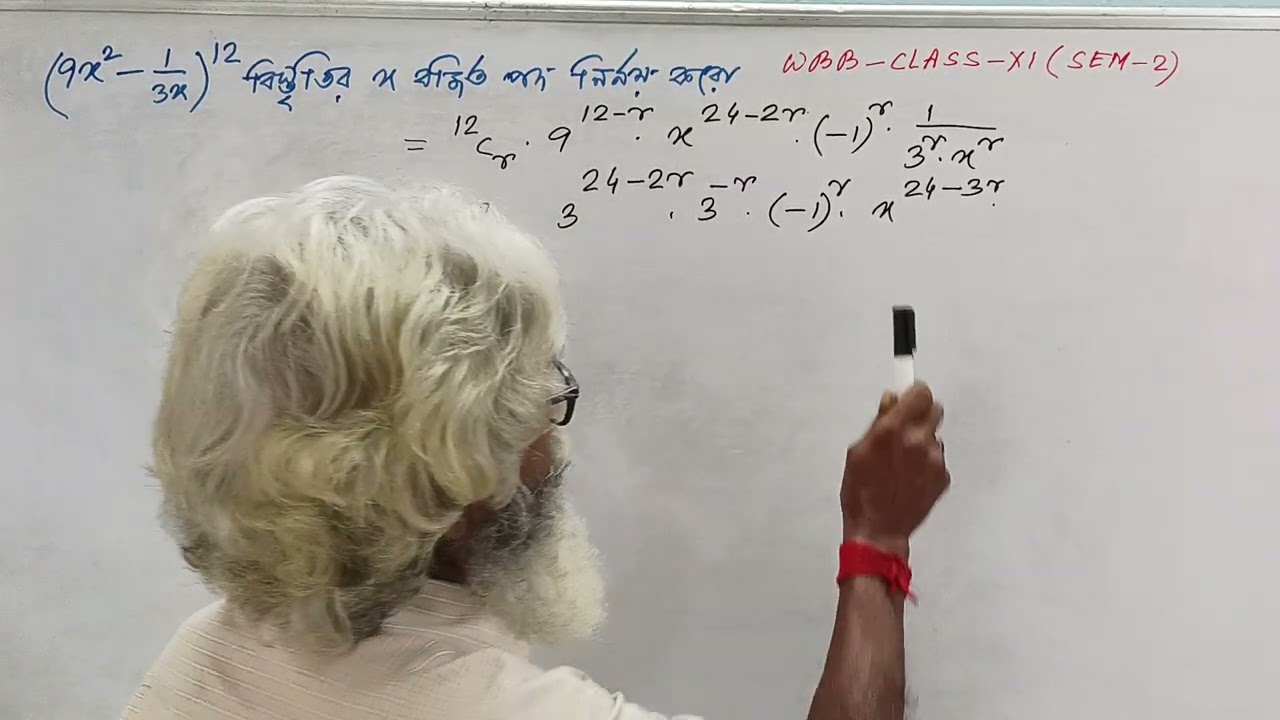 (9x² − 1/3x)¹² বিস্তৃতির x বর্জিত পদ নির্ণয় করো
WBB-CLASS-XI (SEM-2)
= ¹²Cᵣ · 9^(12−r) · x^(24−2r) · (−1)^r · 1/(3^r · x^r)
3^(24−2r) · 3^(−r) · (−1)^r · x^(24−3r)